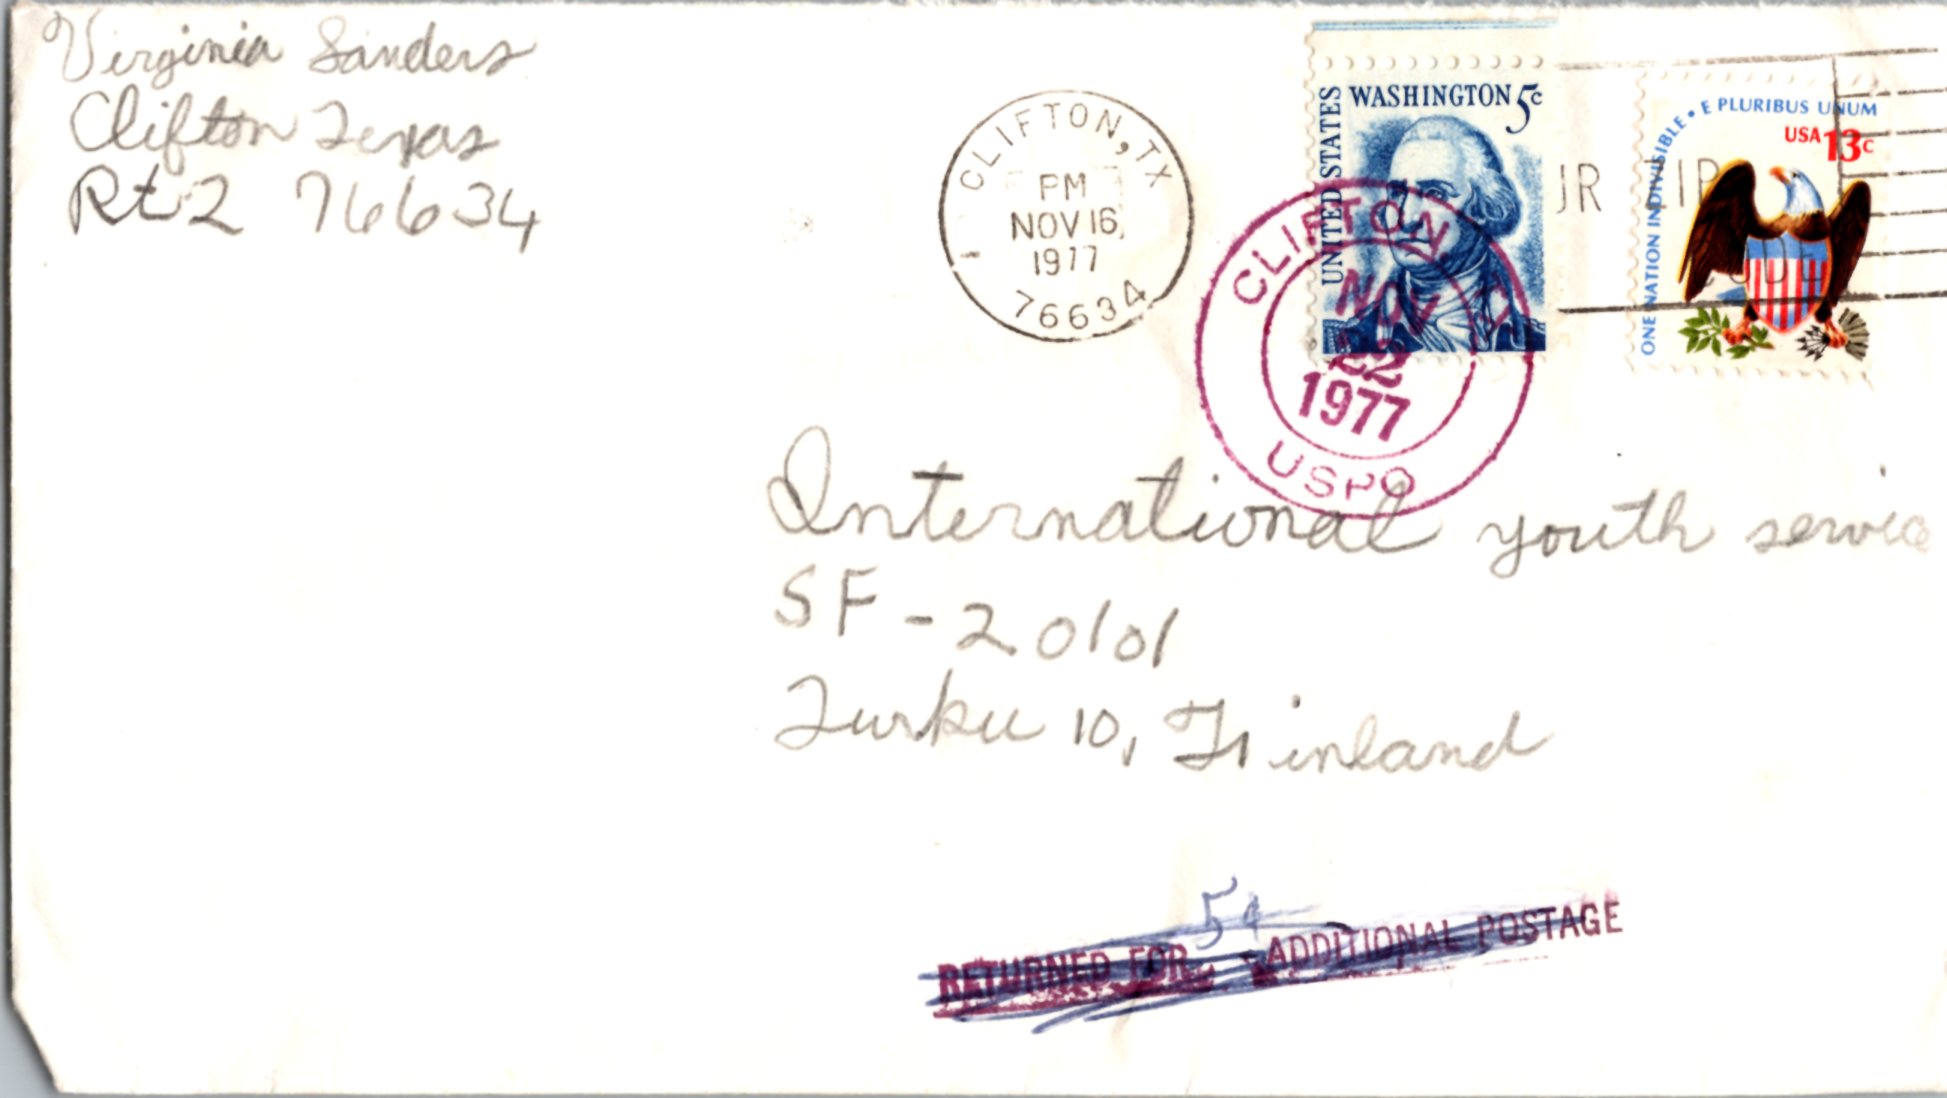 Virginia Sanders
Clifton Texas
Rt 2 76634
CLIFTON, TX
PM
NOV 16,
1977
76634
UNITED STATES
WASHINGTON 5c
ONE NATION INDIVISIBLE • E PLURIBUS UNUM
USA 13c
CLIFTON,
NOV
22
1977
USPO
International youth service
SF-20101
Turku 10, Finland
5¢
RETURNED FOR ADDITIONAL POSTAGE